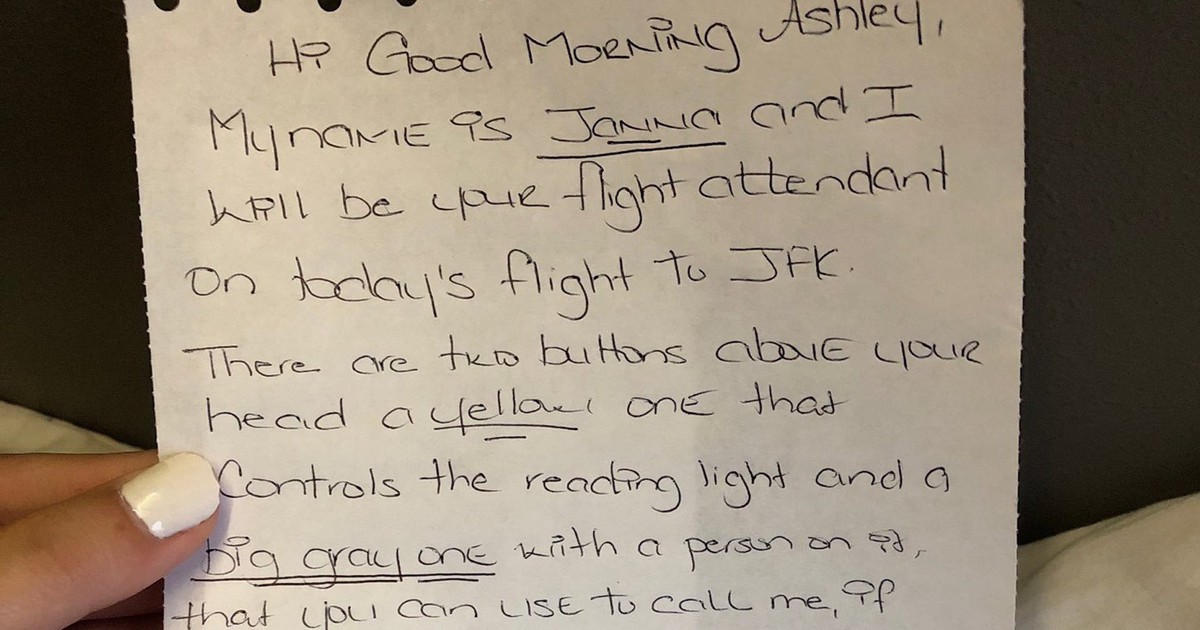 Hi Good Morning Ashley,
My name is Janna and I
will be your flight attendant
on today's flight to JFK.
There are two buttons above your
head a yellow one that
Controls the reading light and a
big gray one with a person on it,
that you can use to call me, if